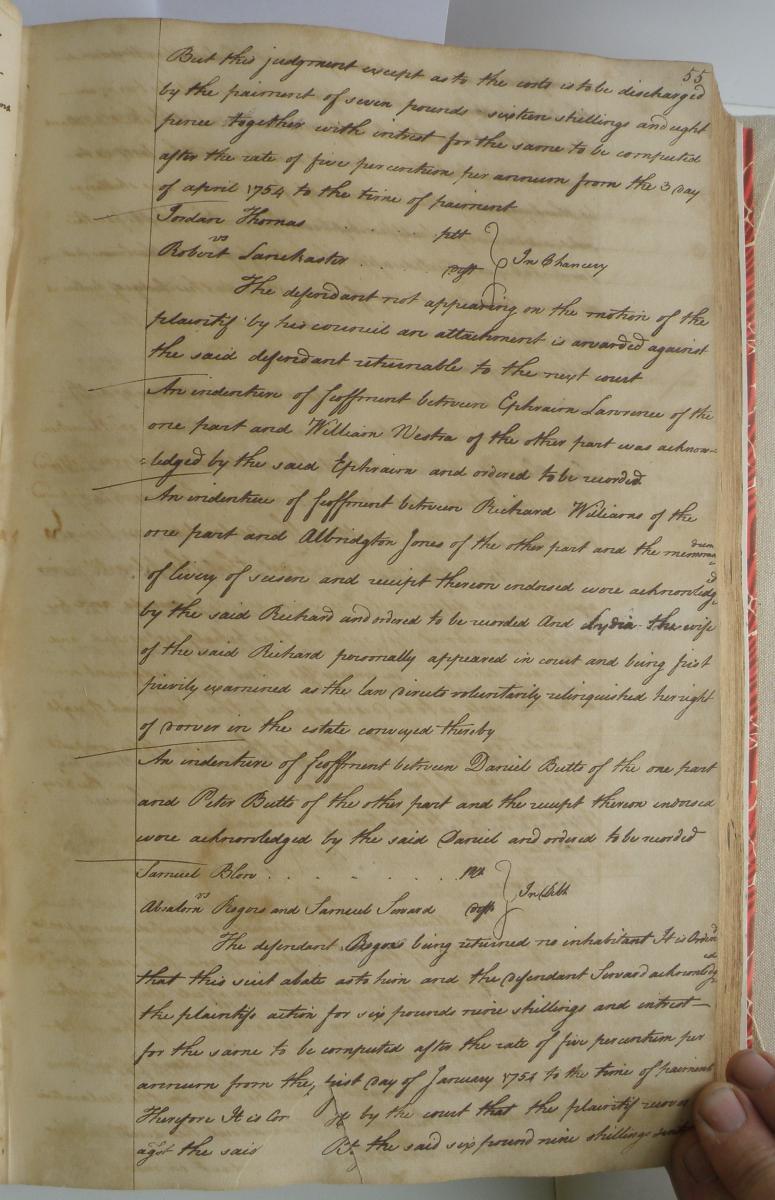 55
But this judgment except as to the costs is to be discharged
by the paiment of seven pounds sixteen shillings and eight
pence together with intrest for the same to be computed
after the rate of five per centum per annum from the 3 Day
of april 1754 to the time of paiment
Jordan Thomas . . . . . plt
vs
Robert Lanckaster . . . . deft
In Chancery
The defendant not appearing on the motion of the
plaintif by his council an attachment is awarded against
the said defendant returnable to the next court
An indenture of feoffment between Ephraim Lawrence of the
one part and William Vestra of the other part was acknow-
=ledged by the said Ephraim and ordered to be recorded
An indenture of feoffment between Richard Williams of the
one part and Albridgton Jones of the other part and the memoran
dum
of livery of seisen and receipt thereon endorsed were acknowledg
ed
by the said Richard and ordered to be recorded And Lydia the wife
of the said Richard personally appeared in court and being first
privily examined as the law directs voluntarily relinquished her right
of dower in the estate conveyed thereby
An indenture of feoffment between Daniel Butts of the one part
and Peter Butts of the other part and the receipt thereon indorsed
were acknowledged by the said Daniel and ordered to be recorded
Samuel Blow . . . . . . plt
vs
Absalom Rogers and Samuel Seward deft
In Debt
The defendant Rogers being returned no inhabitant It is Order
ed
that this suit abate as to him and the defendant Seward acknowledg
ed
the plaintifs action for six pounds nine shillings and intrest
for the same to be computed after the rate of five per centum per
annum from the first Day of January 1754 to the time of paiment
Therefore It is Con by the court that the plaintif recover
agst the said the said six pound nine shillings